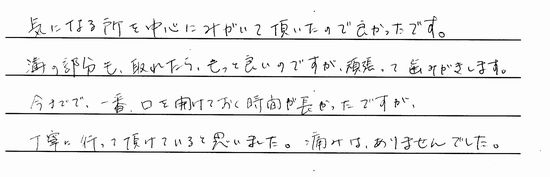 気になる所を中心にみがいて頂いたので良かったです。
溝の部分も、取れたら、もっと良いのですが、頑張って歯みがきします。
今までで、一番、口を開けておく時間が長かったですが、
丁寧に行って頂けていると思いました。痛みは、ありませんでした。